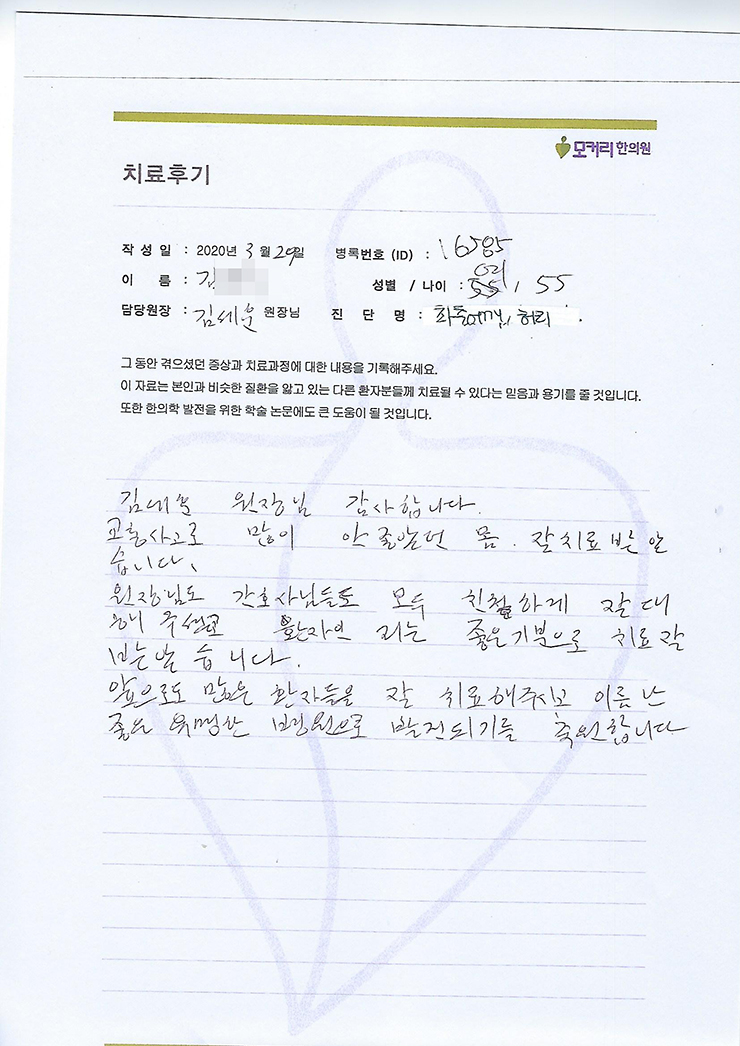 모커리한의원
치료후기
작 성 일 : 2020년 3월 29일 병록번호 (ID) : 16585
이 름 : 김 성별 / 나이 : 여, 55
담당원장 : 김세훈 원장님 진 단 명 : 허리
그 동안 겪으셨던 증상과 치료과정에 대한 내용을 기록해주세요.
이 자료는 본인과 비슷한 질환을 앓고 있는 다른 환자분들께 치료될 수 있다는 믿음과 용기를 줄 것입니다.
또한 한의학 발전을 위한 학술 논문에도 큰 도움이 될 것입니다.
김세훈 원장님 감사합니다.
교통사고로 많이 안 좋았던 몸. 잘 치료 받았
습니다.
원장님도 간호사님들도 모두 친절하게 잘 대
해 주셨고 환자인 저는 좋은 기분으로 치료 잘
받았습니다.
앞으로도 많은 환자들을 잘 치료해주시고 이름난
좋은 유명한 병원으로 발전되기를 축원합니다